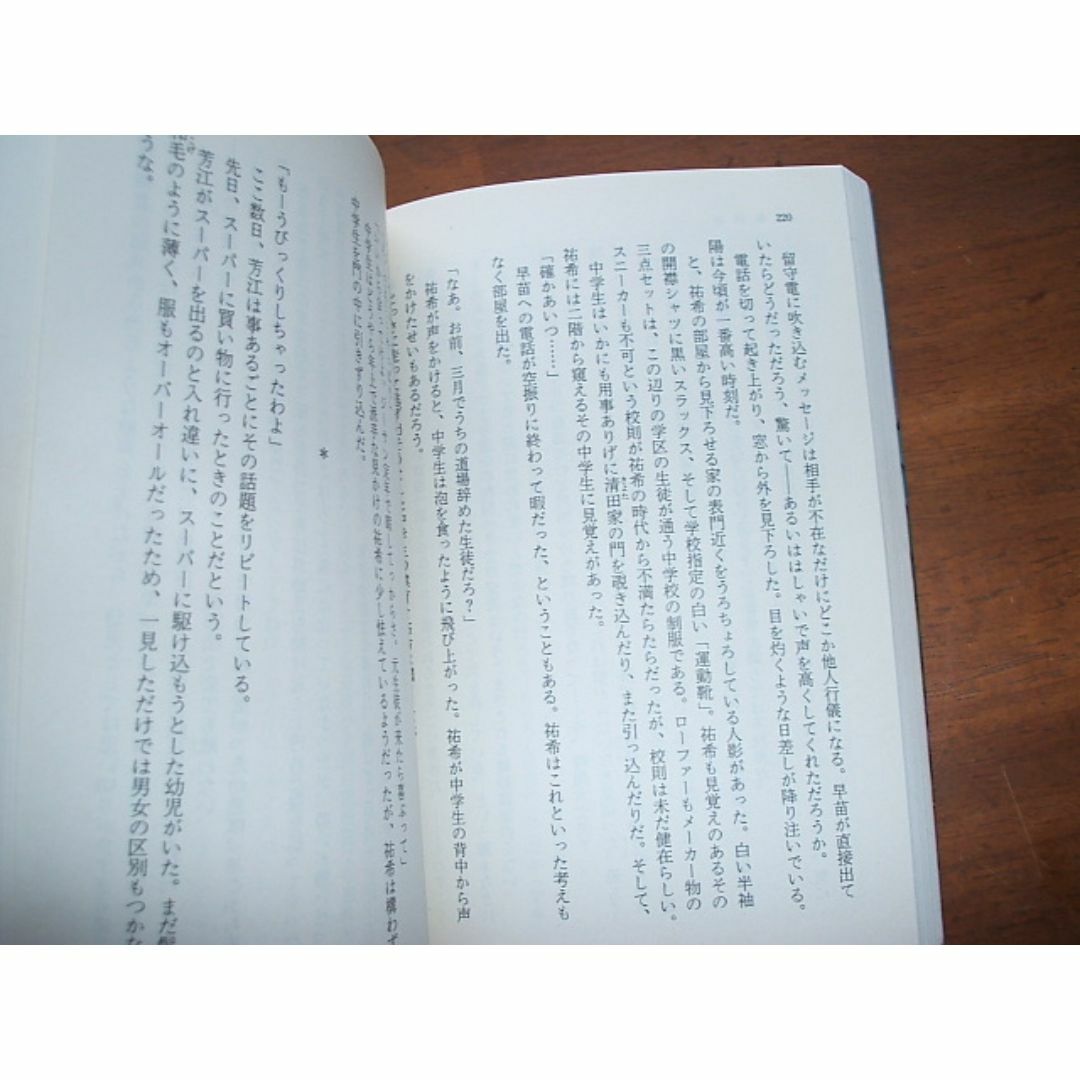 220
留守電に吹き込むメッセージは相手が不在なだけにどこか他人行儀になる。早苗が直接出て
いたらどうだっただろう、驚いて――あるいははしゃいで声を高くしてくれただろうか。
電話を切って起き上がり、窓から外を見下ろした。目を灼くような日差しが降り注いでいる。
陽は今頃が一番高い時刻だ。
と、祐希の部屋から見下ろせる家の表門近くをうろちょろしている人影があった。白い半袖
の開襟シャツに黒いスラックス、そして学校指定の白い「運動靴」。祐希も見覚えのあるその
三点セットは、この辺りの学区の生徒が通う中学校の制服である。ローファーもメーカー物の
スニーカーも不可という校則が祐希の時代から不満たらたらだったが、校則は未だ健在らしい。
中学生はいかにも用事ありげに清田家の門を覗き込んだり、また引っ込んだりだ。そして、
祐希には二階から窺えるその中学生に見覚えがあった。
「確かあいつ……」
早苗への電話が空振りに終わって暇だった、ということもある。祐希はこれといった考えも
なく部屋を出た。
「なあ。お前、三月でうちの道場辞めた生徒だろ？」
祐希が声をかけると、中学生は泡を食ったように飛び上がった。祐希が中学生の背中から声
をかけたせいもあるだろう。
元生徒が来たら喜ぶって」
中学生はどうやら年上で派手な見かけの祐希に少し怯えているようだったが、祐希は構わず
中学生を門の中に引きずり込んだ。
＊
「もーうびっくりしちゃったわよ」
ここ数日、芳江は事あるごとにその話題をリピートしている。
先日、スーパーに買い物に行ったときのことだという。
芳江がスーパーを出るのと入れ違いに、スーパーに駆け込もうとした幼児がいた。まだ髪
毛のように薄く、服もオーバーオールだったため、一見しただけでは男女の区別もつかな
うな。